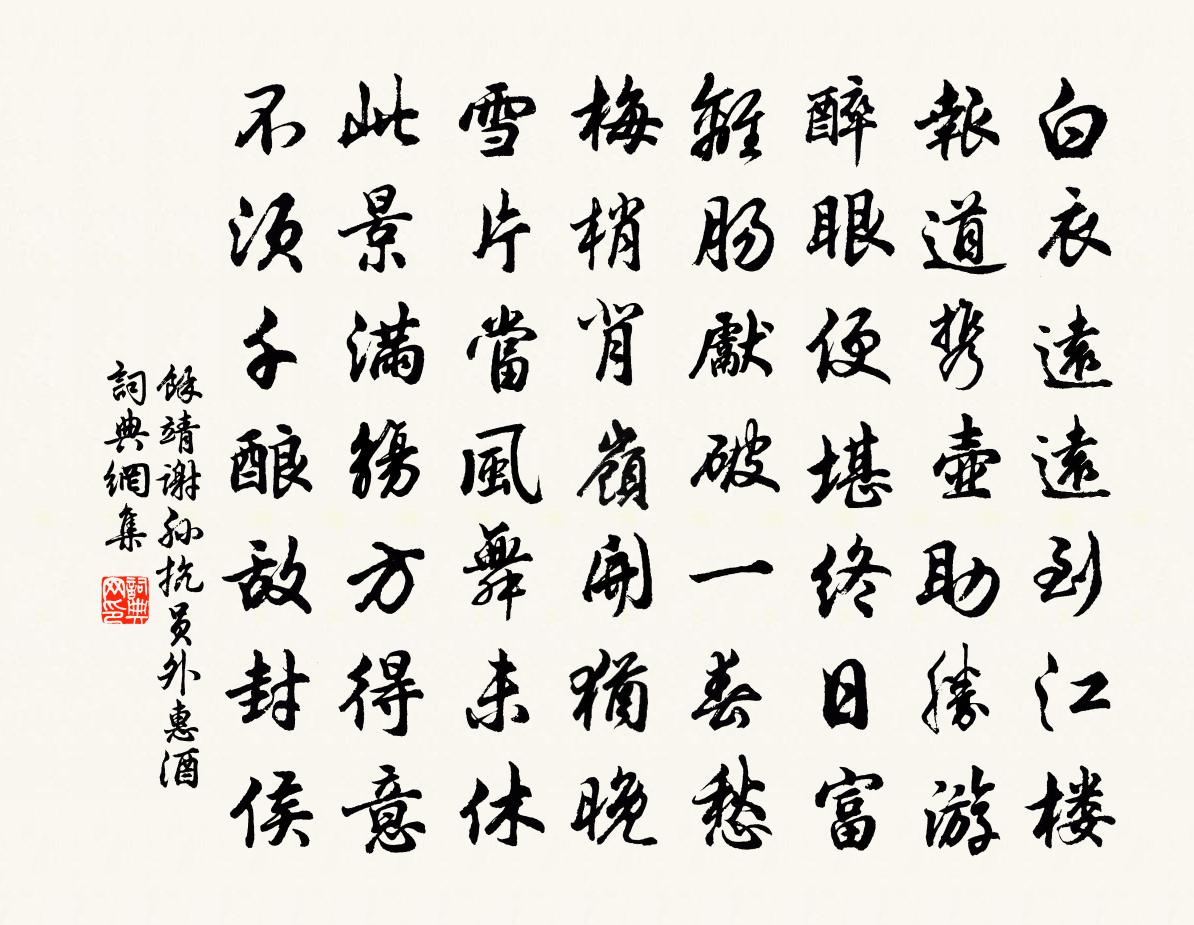 白衣遠遠到江楼
報道携壺助勝游
醉眼便堪終日富
離肠獻破一春愁
梅梢背嶺開猶晚
雪片當風舞未休
此景満觴方得意
不須千酿敌封侯
餘靖謝孙抗员外惠酒
詞典網集
詞典网印